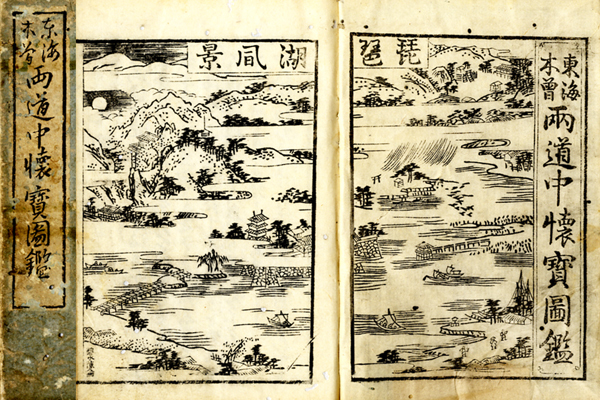 東海
木曽
両道中懐寶圖鑑
東海
木曾
兩道中懷寶圖鑑
琵琶
湖風景